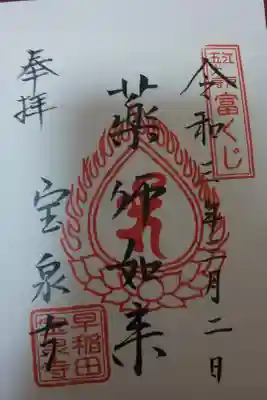 奉拝
令和三年二月二日
薬师如来
宝泉寺
富くじ
早稲田
宝泉寺